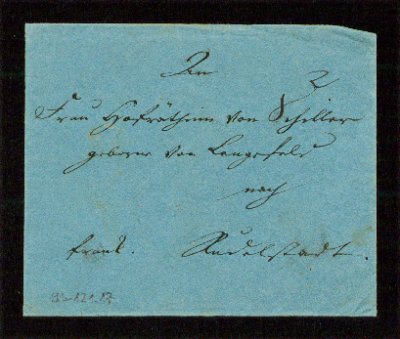 An
Frau Hofräthinn von Schiller
geborne von Lengefeld
nach
frank. Rudolstadt.